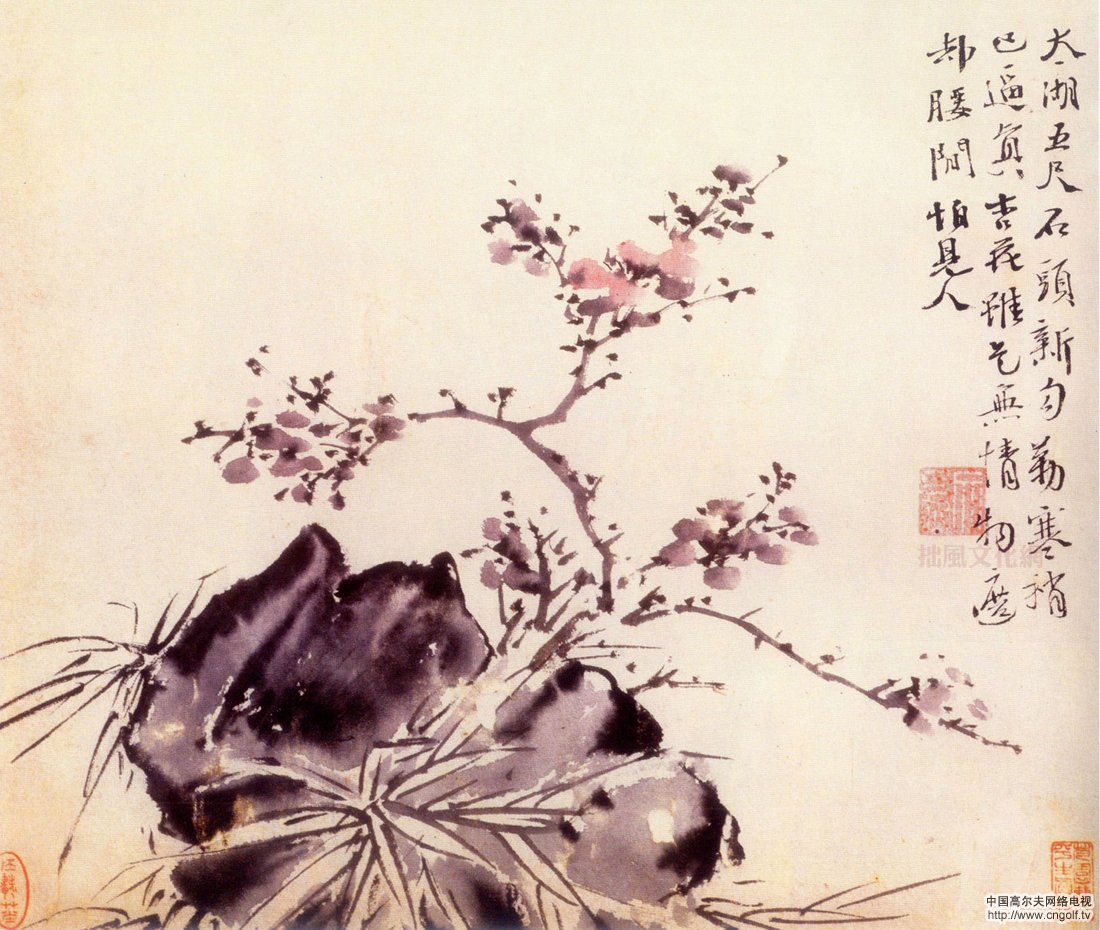 太湖五尺石頭新勾勒寒梢
已逼真杏花雖是無情物遮
却腰間怕見人
拙風文化網
中国高尔夫网络电视
http://www.cngolf.tv